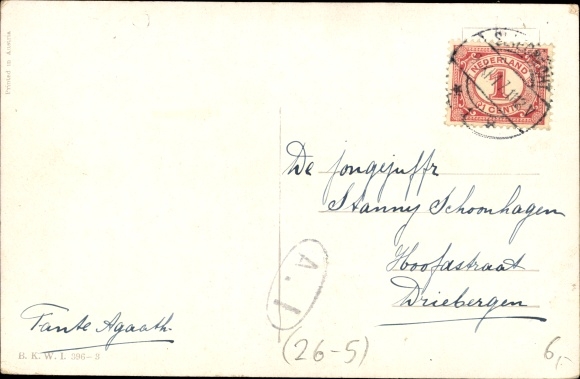 Printed in Austria
NEDERLAND
1
CENT
De jongejuffr
Stanny Schoonhagen
Hoofdstraat
Driebergen
A. I
Tante Agaath.
B. K. W. I. 396-3
(26-5)
6,-